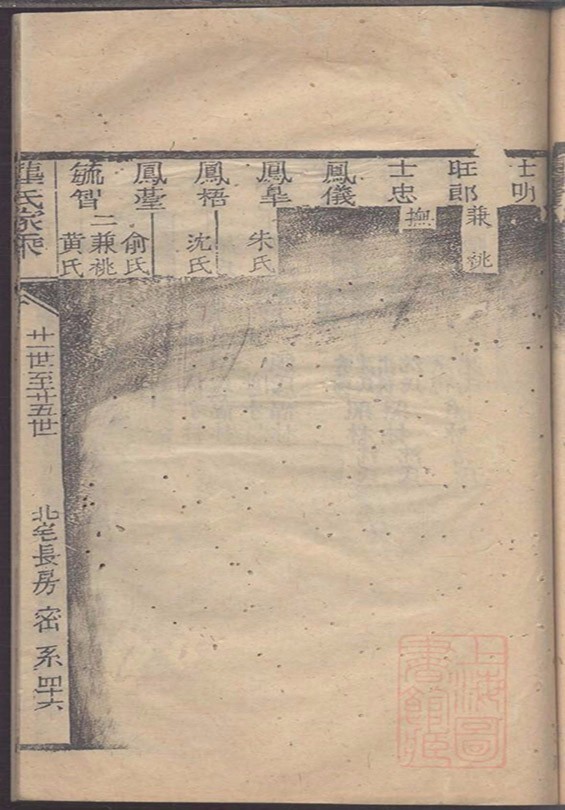 士明
旺郎 兼祧
士忠 撫
鳳儀
鳳臯 朱氏
鳳梧 沈氏
鳳臺 俞氏
毓智 二兼祧 黄氏
龔氏家乘
廿一世至廿五世
北宅長房 密系 四十六
上海圖
書館藏